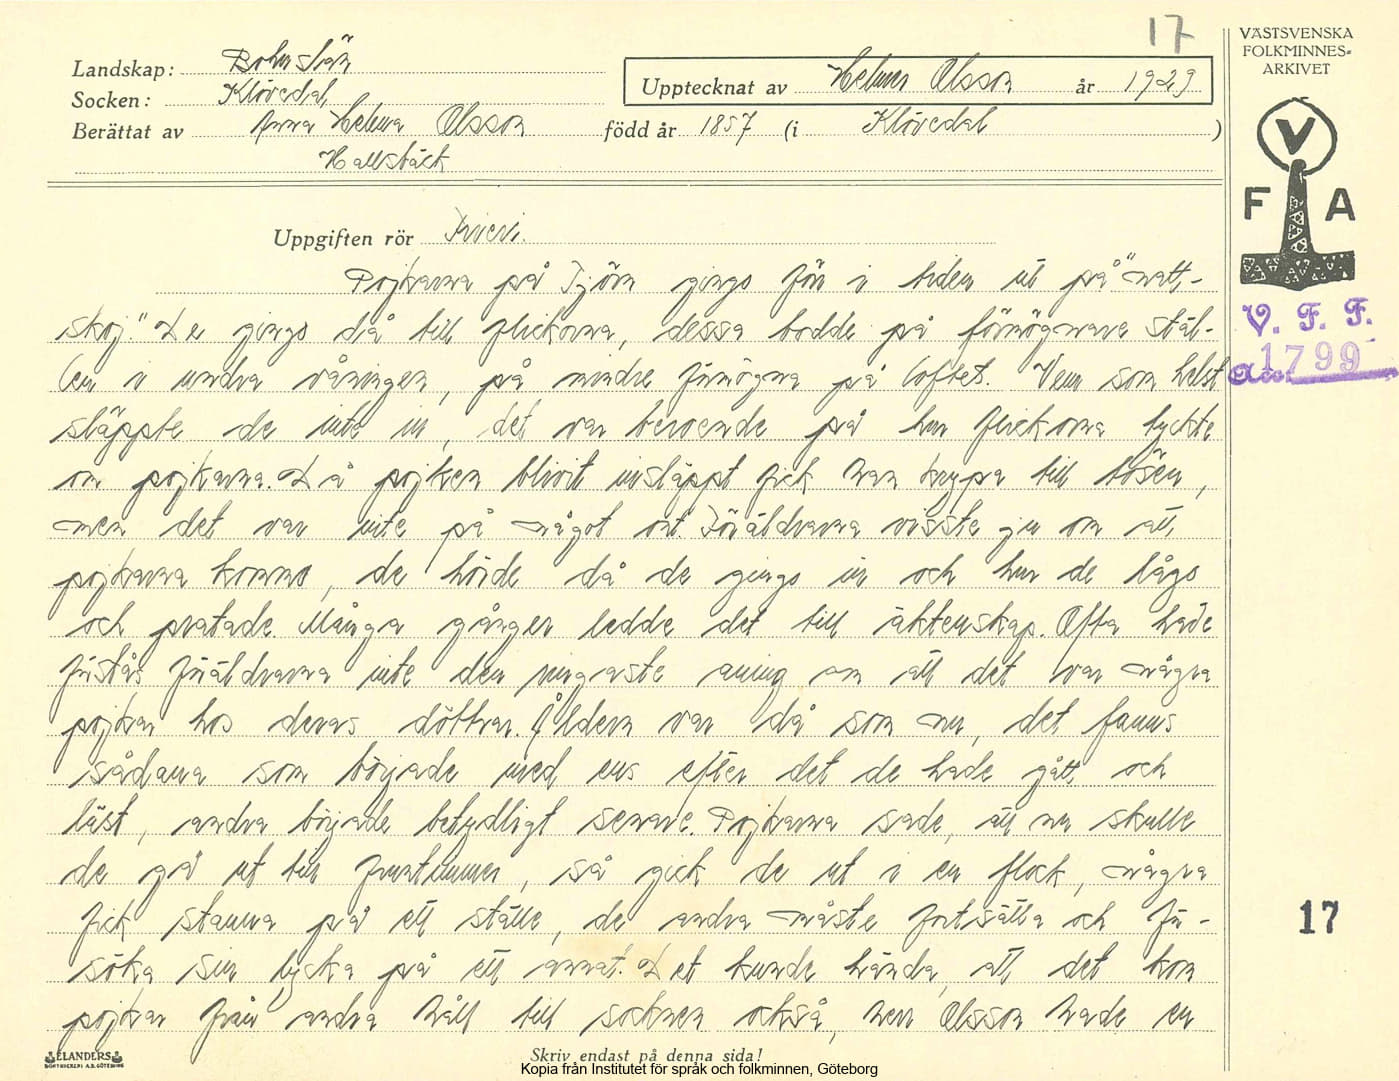 17
Landskap: Bohuslän
Socken: Klövedal
Upptecknat av Helmer Olsson år 1929
Berättat av Anna Helena Olsson född år 1857 (i Klövedal )
Hallsbäck
VÄSTSVENSKA
FOLKMINNES-
ARKIVET
V
F A
V. F. F.
Acc. 1799
Uppgiften rör Frieri.
Pojkarna på Tjörn gingo förr i tiden ut på "natt-
skoj." De gingo då till flickorna, dessa bodde på förmögnare stäl-
len i undra våningen, på mindre förmögna på loftet. Vem som helst
släppte de inte in, det var beroende på hur flickorna tyckte
om pojkarna. Då pojken blivit insläppt fick han krypa till tösen,
men det var inte på något ont. Föräldrarna visste ju om att
pojkarna kommo, de hörde då de gingo in och hur de lågo
och pratade. Många gånger ledde det till äktenskap. Ofta hade
förstås föräldrarna inte den ringaste aning om att det var några
pojkar hos deras döttrar. Åldern var då som nu, det fanns
sådana som började med ens efter det de hade gått och
läst, andra började betydligt senare. Pojkarna sade, att nu skulle
de gå ut till fruntimmer, så gick de ut i en flock, några
fick stanna på ett ställe, de andra måste fortsätta och för-
söka sin lycka på ett annat. Det kunde hända, att det kom
pojkar från andra håll till socknen också, herr Olsson hade en
17
ELANDERS
BOKTRYCKERI A.B. GÖTEBORG
Skriv endast på denna sida!
Kopia från Institutet för språk och folkminnen, Göteborg